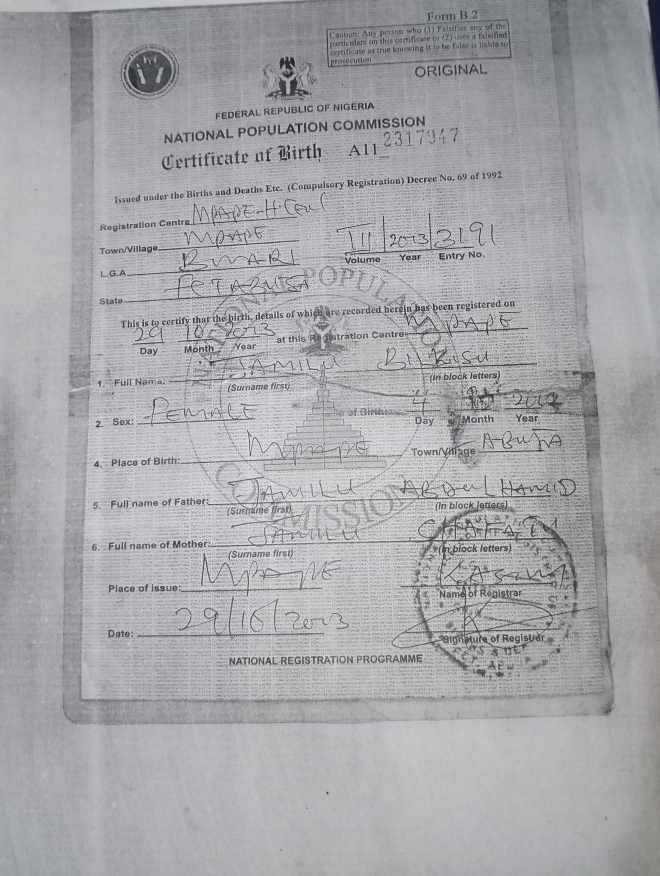 Form B.2
Caution: Any person who (1) Falsifies any of the
particulars on this certificate or (2) uses a falsified
certificate as true knowing it to be false is liable to
prosecution
ORIGINAL
FEDERAL REPUBLIC OF NIGERIA
NATIONAL POPULATION COMMISSION
Certificate of Birth A11 2317947
Issued under the Births and Deaths Etc. (Compulsory Registration) Decree No. 69 of 1992
Registration Centre MPAPE
Town/Village MPAPE
L.G.A BWARI
State FCT ABUJA
III 2013 3191
Volume Year Entry No.
This is to certify that the birth, details of which are recorded herein has been registered on
29 10 2013 at this Registration Centre MPAPE
Day Month Year
1. Full Name: JAMILU BILKISU
(Surname first) (In block letters)
2. Sex: FEMALE of Birth: 4
Day Month Year
4. Place of Birth: MPAPE Town/Village ABUJA
5. Full name of Father: JAMILU ABDULHAMID
(Surname first) (In block letters)
6. Full name of Mother: JAMILU
(Surname first) (In block letters)
Place of Issue: MPAPE
Name of Registrar
Date: 29/10/2013
Signature of Registrar
NATIONAL REGISTRATION PROGRAMME
NATIONAL POPULATION COMMISSION